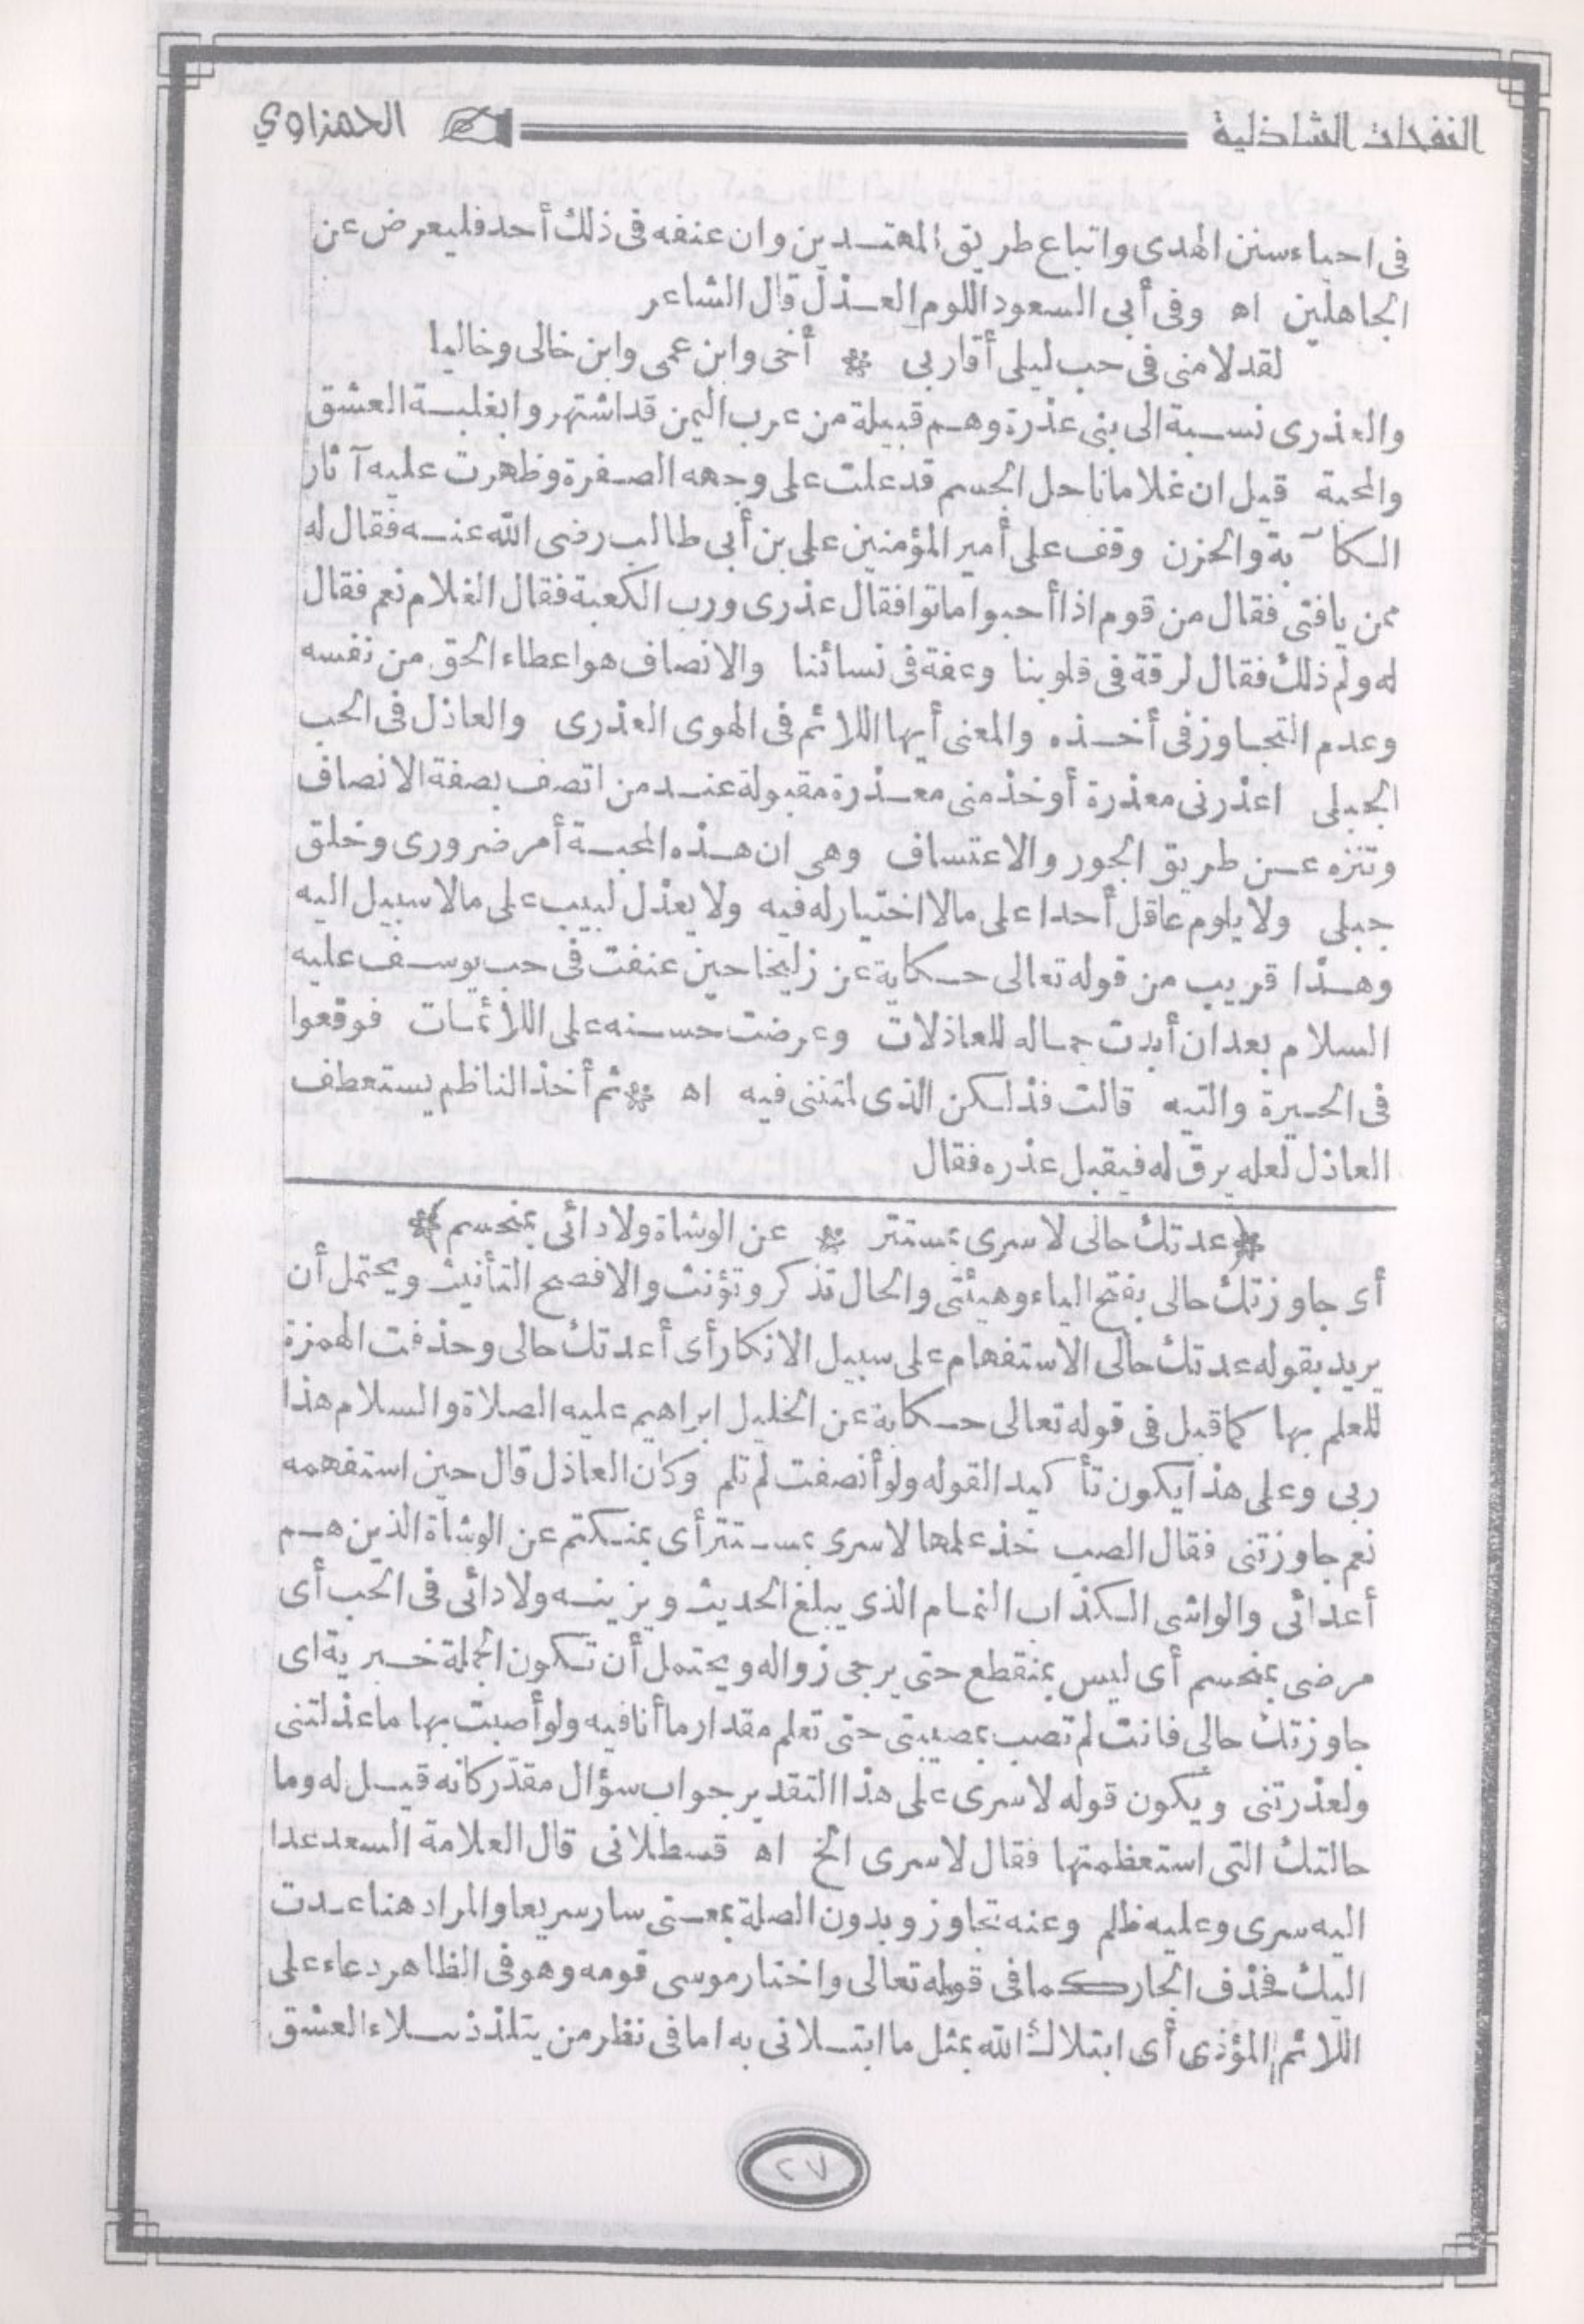 النفحات الشاذلية الحمزاوي
فى احياء سنن الهدى واتباع طريق المهتدين وان عنفه فى ذلك أحد فليعرض عن
الجاهلين اه وفى أبى السعود اللوم العذل قال الشاعر
لقد لامنى فى حب ليلى أقاربى * أخى وابن عمى وابن خالى وخاليا
والعذرى نسبة الى بنى عذرة وهم قبيلة من عرب اليمن قد اشتهروا بغلبة العشق
والمحبة قيل ان غلاما ناحل الجسم قد علت على وجهه الصفرة وظهرت عليه آثار
الكآبة والحزن وقف على أمير المؤمنين على بن أبى طالب رضى الله عنه فقال له
ممن يافتى فقال من قوم اذا أحبوا ماتوا فقال عذرى ورب الكعبة فقال الغلام نعم فقال
له ولم ذلك فقال لرقة فى قلوبنا وعفة فى نسائنا والانصاف هو اعطاء الحق من نفسه
وعدم التجاوز فى أخذه والمعنى أيها اللائم فى الهوى العذرى والعاذل فى الحب
الجبلى اعذرنى معذرة أو خذ منى معذرة مقبولة عند من اتصف بصفة الانصاف
وتنزه عن طريق الجور والاعتساف وهى ان هذه المحبة أمر ضرورى وخلق
جبلى ولا يلوم عاقل أحدا على مالا اختيار له فيه ولا يعذل لبيب على مالا سبيل اليه
وهذا قريب من قوله تعالى حكاية عن زليخا حين عنفت فى حب يوسف عليه
السلام بعد ان أبدت جماله للعاذلات وعرضت حسنه على اللائمات فوقعوا
فى الحيرة والتيه قالت فذلكن الذى لمتننى فيه اه * ثم أخذ الناظم يستعطف
العاذل لعله يرق له فيقبل عذره فقال
* عدتك حالى لا سرى بمستتر * عن الوشاة ولا دائى بمنحسم *
أى جاوزتك حالى بفتح الياء وهيئتى والحال تذكر وتؤنث والافصح التأنيث ويحتمل أن
يريد بقوله عدتك حالى الاستفهام على سبيل الانكار أى أعدتك حالى وحذفت الهمزة
للعلم بها كما قيل فى قوله تعالى حكاية عن الخليل ابراهيم عليه الصلاة والسلام هذا
ربى وعلى هذا يكون تأكيدا لقوله ولو أنصفت لم تلم وكان العاذل قال حين استفهمه
نعم جاوزتنى فقال الصب خذ علمها لا سرى بمستتر أى بمنكتم عن الوشاة الذين هم
أعدائى والواشى الكذاب النمام الذى يبلغ الحديث ويزينه ولا دائى فى الحب أى
مرضى بمنحسم أى ليس بمنقطع حتى يرجى زواله ويحتمل أن تكون الجملة خبرية اى
جاوزتك حالى فانت لم تصب بمصيبتى حتى تعلم مقدار ما أنا فيه ولو أصبت بها ما عذلتنى
ولعذرتنى ويكون قوله لا سرى على هذا التقدير جواب سؤال مقدر كانه قيل له وما
حالتك التى استعظمتها فقال لا سرى الخ اه قسطلانى قال العلامة السعد عدا
اليه سرى وعليه ظلم وعنه تجاوز وبدون الصلة بمعنى سار سريعا والمراد هنا عدت
اليك فحذف الجار كما فى قوله تعالى واختار موسى قومه وهو فى الظاهر دعاء على
اللائم المؤذى أى ابتلاك الله بمثل ما ابتلانى به اما فى نظر من يتلذذ ببلاء العشق
٢٧